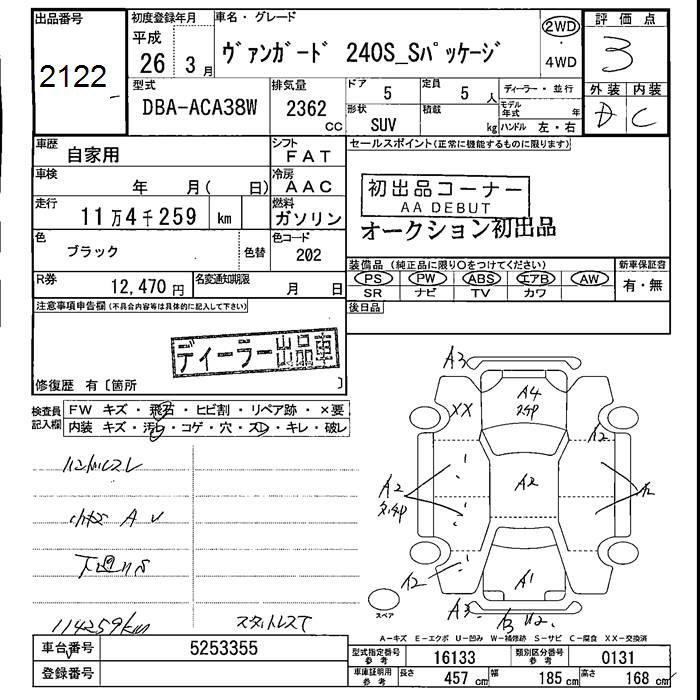 出品番号
2122
初度登録年月
平成
26 3 月
車名・グレード
ヴァンガード 240S_Sパッケージ
2WD
・
4WD
評価点
3
外装 内装
C
型式
DBA-ACA38W
排気量
2362 cc
ドア
5
定員
5 人
形状
SUV
積載
kg
ディーラー・並行
モデル年式 年
ハンドル 左・右
車歴
自家用
シフト
FAT
車検
年 月( 日)
冷房
AAC
走行
11万4千259 km
燃料
ガソリン
色
ブラック
色替
色コード
202
R券
12,470 円
名変通知期限
月 日
セールスポイント(正常に機能するものに限ります)
初出品コーナー
AA DEBUT
オークション初出品
装備品 (純正品に限り○をつけてください)
PS PW ABS エアB AW
SR ナビ TV カワ
新車保証書
有・無
後日品
注意事項申告欄(不具合内容等は具体的に記入して下さい)
ディーラー出品車
修復歴 有〔箇所 〕
検査員記入欄
FW キズ・飛石・ヒビ割・リペア跡・×要
内装 キズ・汚レ・コゲ・穴・スレ・キレ・破レ
ハンドルスレ
小キズ A U
下廻りS
114259km
スタットレスT
A3
XX
A4
A2
A2
A2
A2
A1
A3
スペア
A-キズ E-エクボ U-凹み W-補修跡 S-サビ C-腐食 XX-交換済
車台番号
5253355
登録番号
型式指定番号 参考
16133
類別区分番号 参考
0131
車庫証明用 参考
長さ 457 cm
幅 185 cm
高さ 168 cm